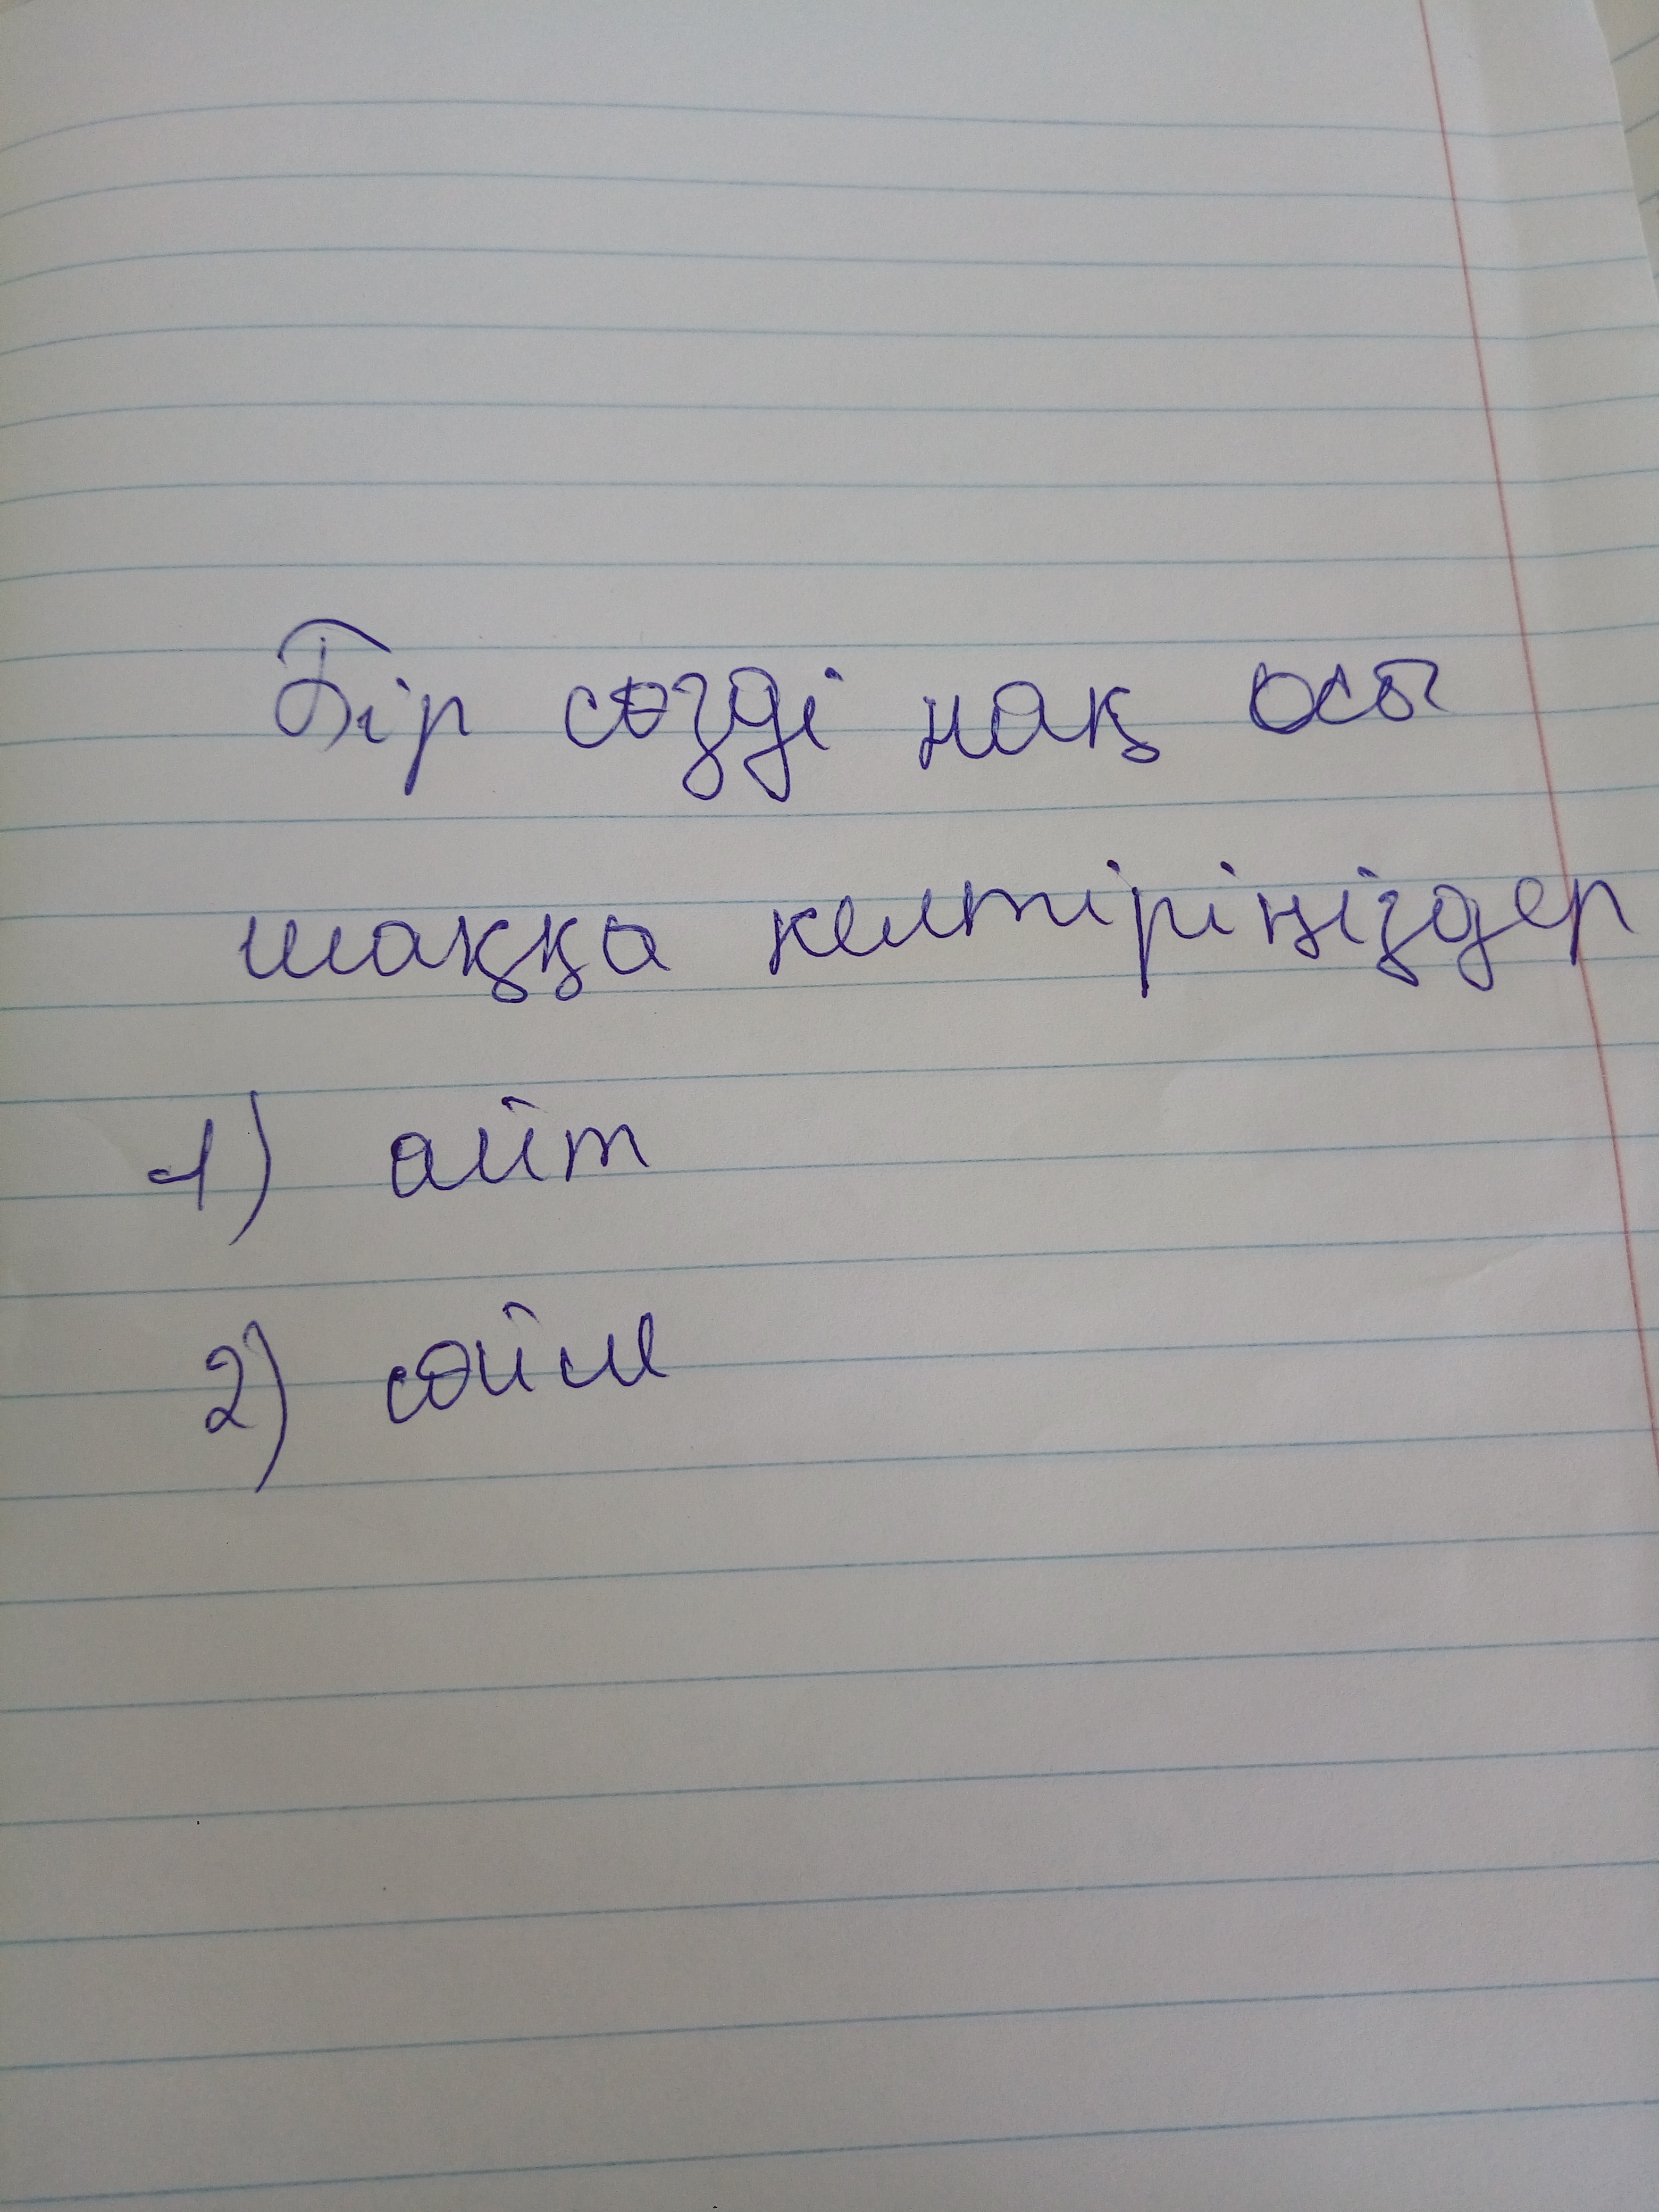 Бір сөзді нақ осы
шаққа келтіріңіздер
1) айт
2) сөйле